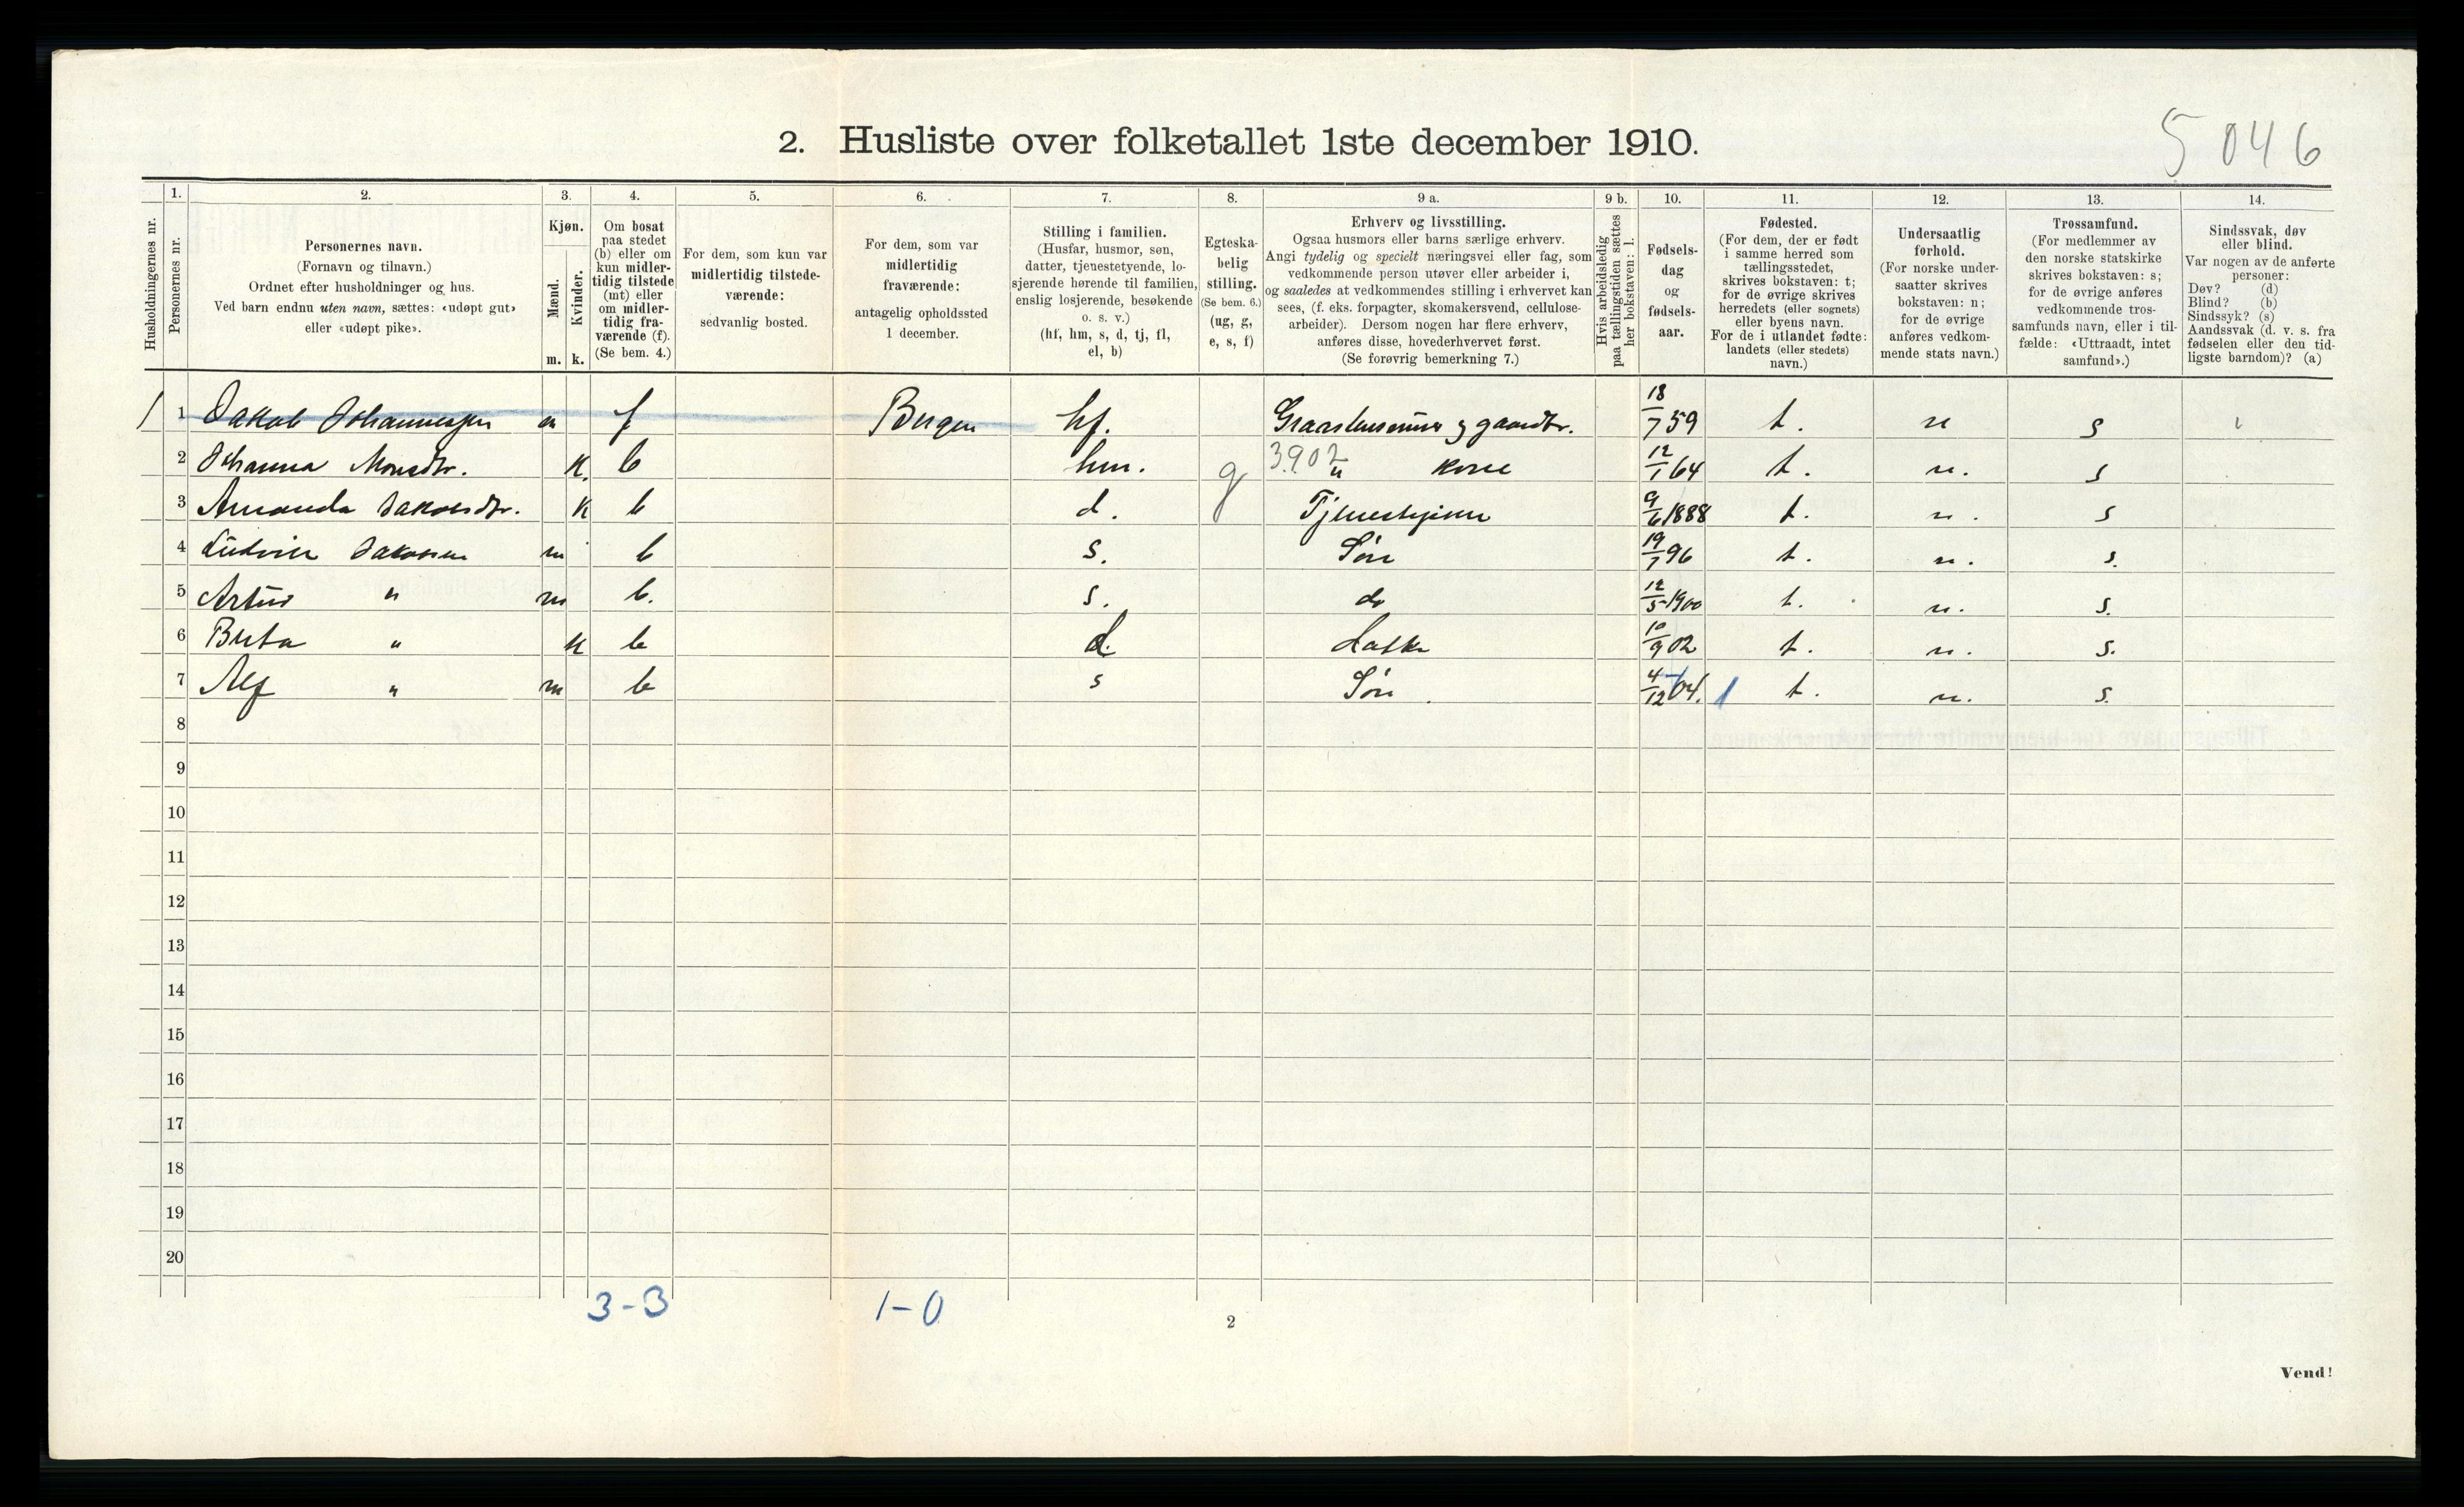 5046
2. Husliste over folketallet 1ste december 1910.
Husholdningernes nr.
1.
Personernes nr.
2.
Personernes navn.
(Fornavn og tilnavn.)
Ordnet efter husholdninger og hus.
Ved barn endnu uten navn, sættes: «udøpt gut»
eller «udøpt pike».
3.
Kjøn.
Mænd.
m.
Kvinder.
k.
4.
Om bosat
paa stedet
(b) eller om
kun midler-
tidig tilstede
(mt) eller
om midler-
tidig fra-
værende (f).
(Se bem. 4.)
5.
For dem, som kun var
midlertidig tilstede-
værende:
sedvanlig bosted.
6.
For dem, som var
midlertidig
fraværende:
antagelig opholdssted
1 december.
7.
Stilling i familien.
(Husfar, husmor, søn,
datter, tjenestetyende, lo-
sjerende hørende til familien,
enslig losjerende, besøkende
o. s. v.)
(hf, hm, s, d, tj, fl,
el, b)
8.
Egteska-
belig
stilling.
(Se bem. 6.)
(ug, g,
e, s, f)
9 a.
Erhverv og livsstilling.
Ogsaa husmors eller barns særlige erhverv.
Angi tydelig og specielt næringsvei eller fag, som
vedkommende person utøver eller arbeider i,
og saaledes at vedkommendes stilling i erhvervet kan
sees, (f. eks. forpagter, skomakersvend, cellulose-
arbeider). Dersom nogen har flere erhverv,
anføres disse, hovederhvervet først.
(Se forøvrig bemerkning 7.)
9 b.
Hvis arbeidsledig
paa tællingstiden sættes
her bokstaven: l.
10.
Fødsels-
dag
og
fødsels-
aar.
11.
Fødested.
(For dem, der er født
i samme herred som
tællingsstedet,
skrives bokstaven: t;
for de øvrige skrives
herredets (eller sognets)
eller byens navn.
For de i utlandet fødte:
landets (eller stedets)
navn.)
12.
Undersaatlig
forhold.
(For norske under-
saatter skrives
bokstaven: n;
for de øvrige
anføres vedkom-
mende stats navn.)
13.
Trossamfund.
(For medlemmer av
den norske statskirke
skrives bokstaven: s;
for de øvrige anføres
vedkommende tros-
samfunds navn, eller i til-
fælde: «Uttraadt, intet
samfund».)
14.
Sindssvak, døv
eller blind.
Var nogen av de anførte
personer:
Døv? (d)
Blind? (b)
Sindssyk? (s)
Aandssvak (d. v. s. fra
fødselen eller den tid-
ligste barndom)? (a)
1 1 Jakob Johannessen m f Bergen hf. gaardbr. 18/7 59 t. n s
2 Johanna Monsdtr. K. b hm. g 3902 " kone 12/1 64 t. n. s
3 Amanda Jakobsdtr. K b d. Tjenestepike 9/6 1888 t. n. s
4 Ludvik Jakobsen m b s. Søn 19/7 96 t. n. s.
5 Artur " m b. s. do 12/5 1900 t. n. s.
6 Berta " K b d. Datter 10/9 02 t. n. s.
7 Alf " m b s Søn 4/12 04. 1 t. n. s.
8
9
10
11
12
13
14
15
16
17
18
19
20
3-3 1-0
2
Vend!